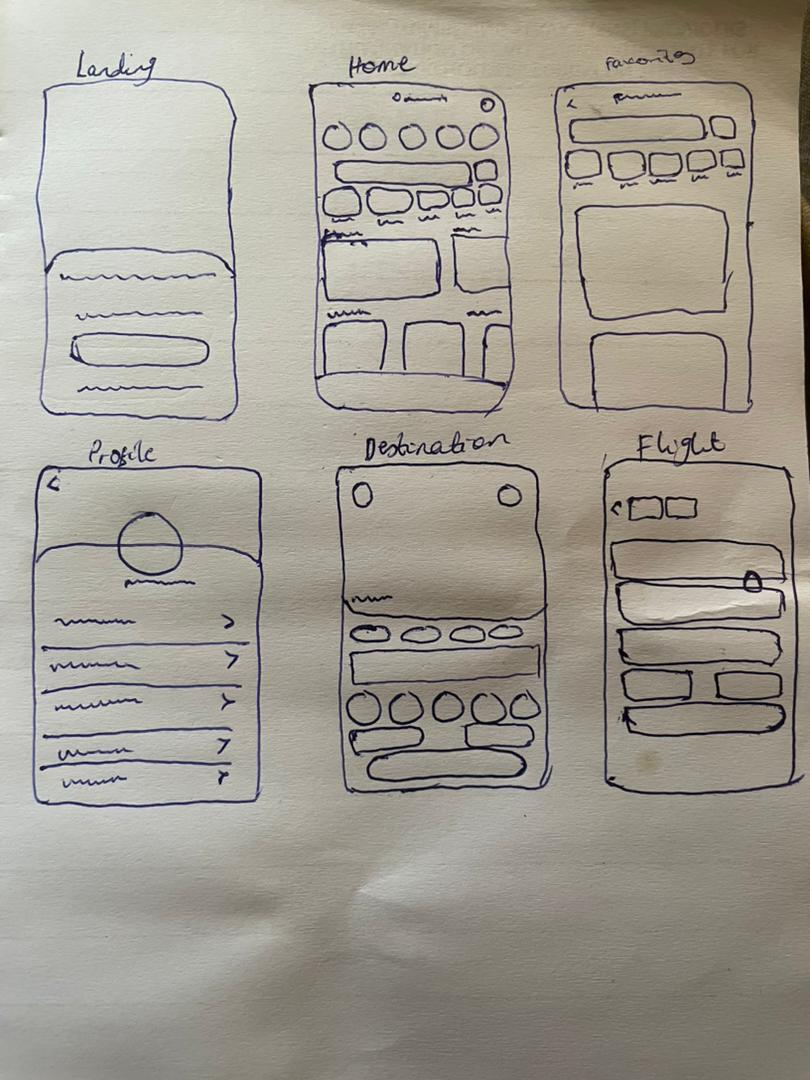 Landing
Home
Favorites
Profile
Destination
Flight